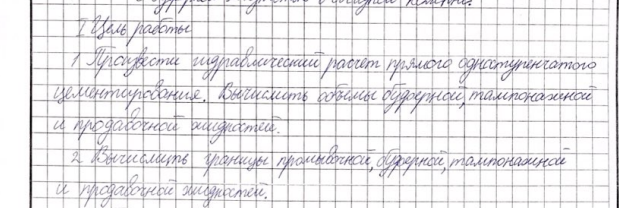 обсадной колонны.
I Цель работы
1 Произвести гидравлический расчет прямого одноступенчатого
цементирования. Вычислить объемы буферной, тампонажной
и продавочной жидкостей.
2 Вычислить границы промывочной, буферной, тампонажной
и продавочной жидкостей.